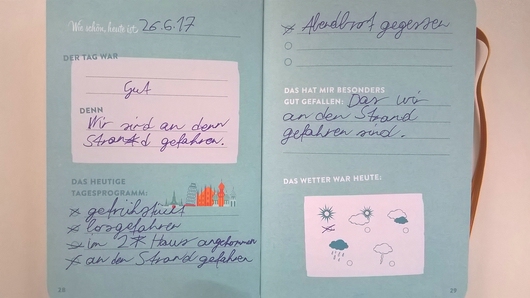 Wie schön, heute ist: 26.6.17
DER TAG WAR
Gut
DENN
Wir sind an denn
Strand gefahren.
DAS HEUTIGE
TAGESPROGRAMM:
gefrühstückt
losgefahren
im 2 Haus angekommen
an den Strand gefahren
28
Abendbrot gegessen
DAS HAT MIR BESONDERS
GUT GEFALLEN: Das wir
an den Strand
gefahren sind.
DAS WETTER WAR HEUTE:
29